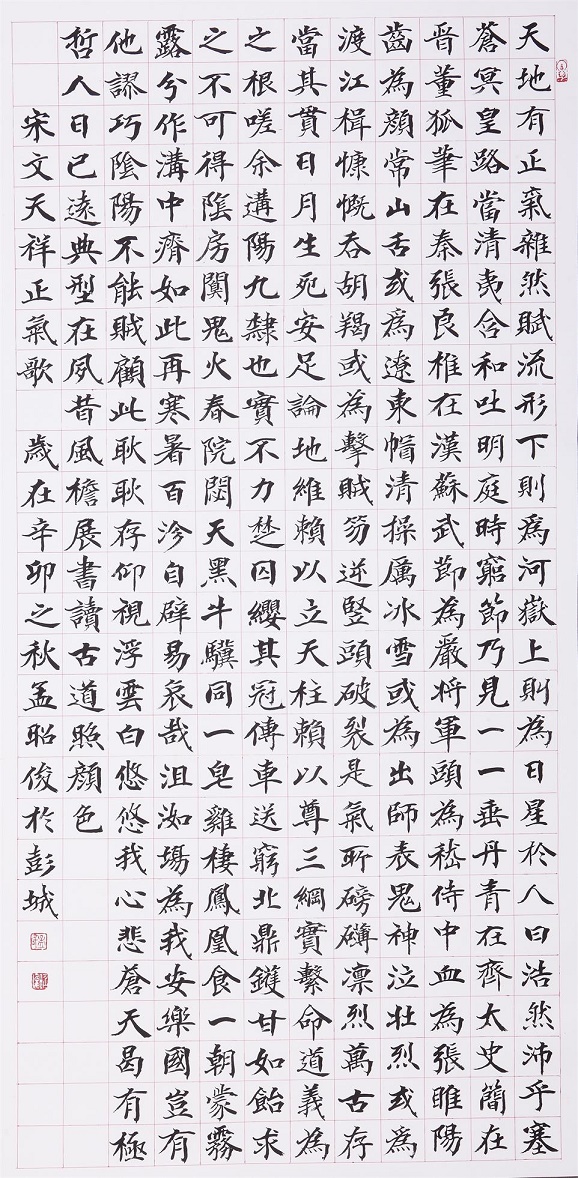 天地有正氣雜然賦流形下則為河嶽上則為日星於人曰浩然沛乎塞
蒼冥皇路當清夷含和吐明庭時窮節乃見一一垂丹青在齊太史簡在
晉董狐筆在秦張良椎在漢蘇武節為嚴將軍頭為嵇侍中血為張睢陽
齒為顏常山舌或為遼東帽清操厲冰雪或為出師表鬼神泣壯烈或為
渡江楫慷慨吞胡羯或為擊賊笏逆豎頭破裂是氣所磅礴凛烈萬古存
當其貫日月生死安足論地維賴以立天柱賴以尊三綱實繫命道義為
之根嗟余遘陽九隸也實不力楚囚纓其冠傳車送窮北鼎鑊甘如飴求
之不可得陰房闃鬼火春院閟天黑牛驥同一皂雞棲鳳凰食一朝蒙霧
露兮作溝中瘠如此再寒暑百沴自辟易哀哉沮洳場為我安樂國豈有
他謬巧陰陽不能賊顧此耿耿存仰視浮雲白悠悠我心悲蒼天曷有極
哲人日已遠典型在夙昔風檐展書讀古道照顏色
宋文天祥正氣歌 歲在辛卯之秋孟昭俊於彭城